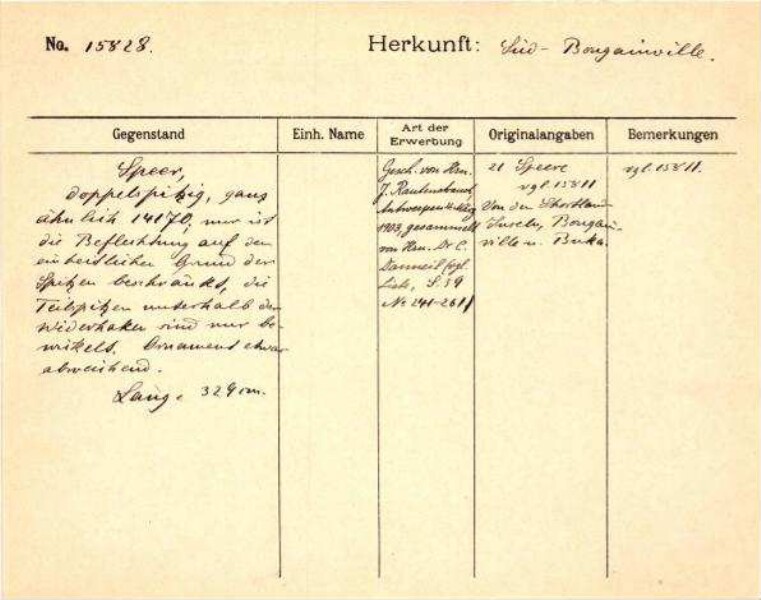 No. 15828.
Herkunft: Süd-Bougainville.
Gegenstand
Einh. Name
Art der Erwerbung
Originalangaben
Bemerkungen
Speer,
doppelspitzig, ganz
ähnlich 14170, nur ist
die Beflechtung auf den
einheitlichen Grund der
Spitzen beschränkt, die
Teilspitzen unterhalb der
Widerhaken sind nur be-
wickelt. Ornament etwas
abweichend.
Länge 329 cm.
Gesch. von Hrn.
J. Rautenstrauch
Antwerpen
1903, gesammelt
von Hrn. Dr C.
Danneil (vgl.
Liste, S. 39
No 241-261)
21 Speere
vgl. 15811
Von den Shortland
Inseln, Bougain-
ville u. Buka.
vgl. 15811.